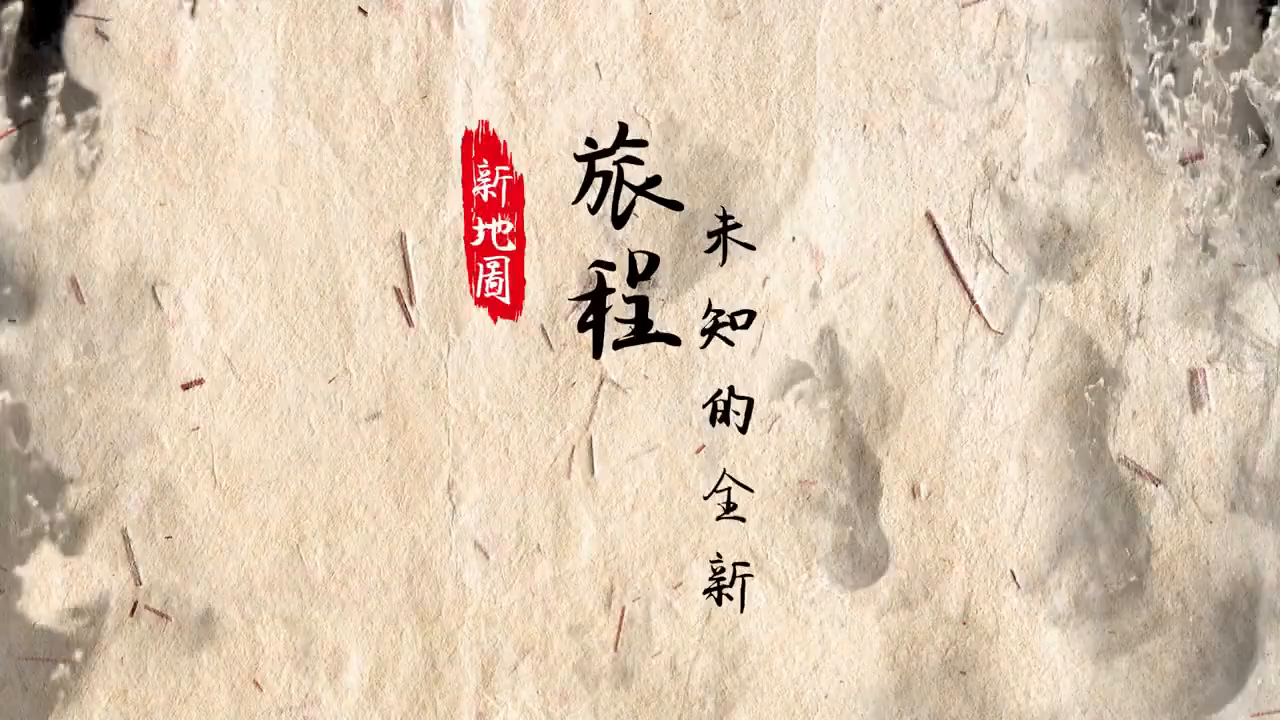 未知的全新
旅程
新地圖